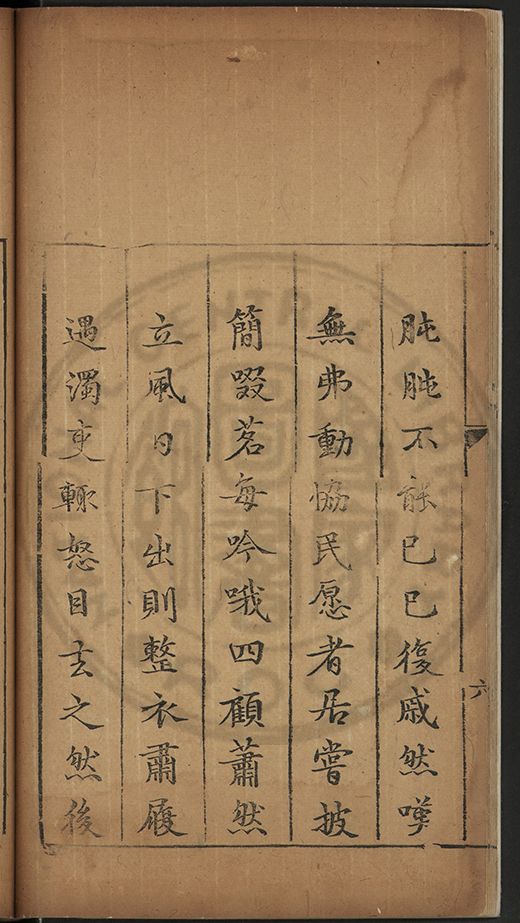 肫肫不能已已復戚然嘆
無弗動恊民愿者居嘗披
簡啜茗每吟哦四顧蕭然
立風日下出則整衣肅履
遇濁吏輙怒目去之然後
六